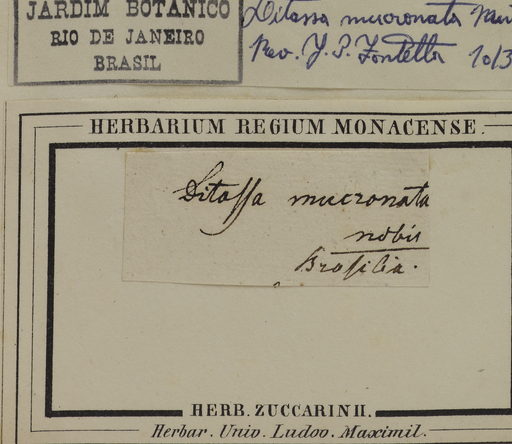 JARDIM BOTANICO
RIO DE JANEIRO
BRASIL
Ditassa mucronata
Rev. J. P. Fontella 10/3
HERBARIUM REGIUM MONACENSE.
Ditassa mucronata
nobis
Brasilia.
HERB. ZUCCARINII.
Herbar. Univ. Ludov. Maximil.